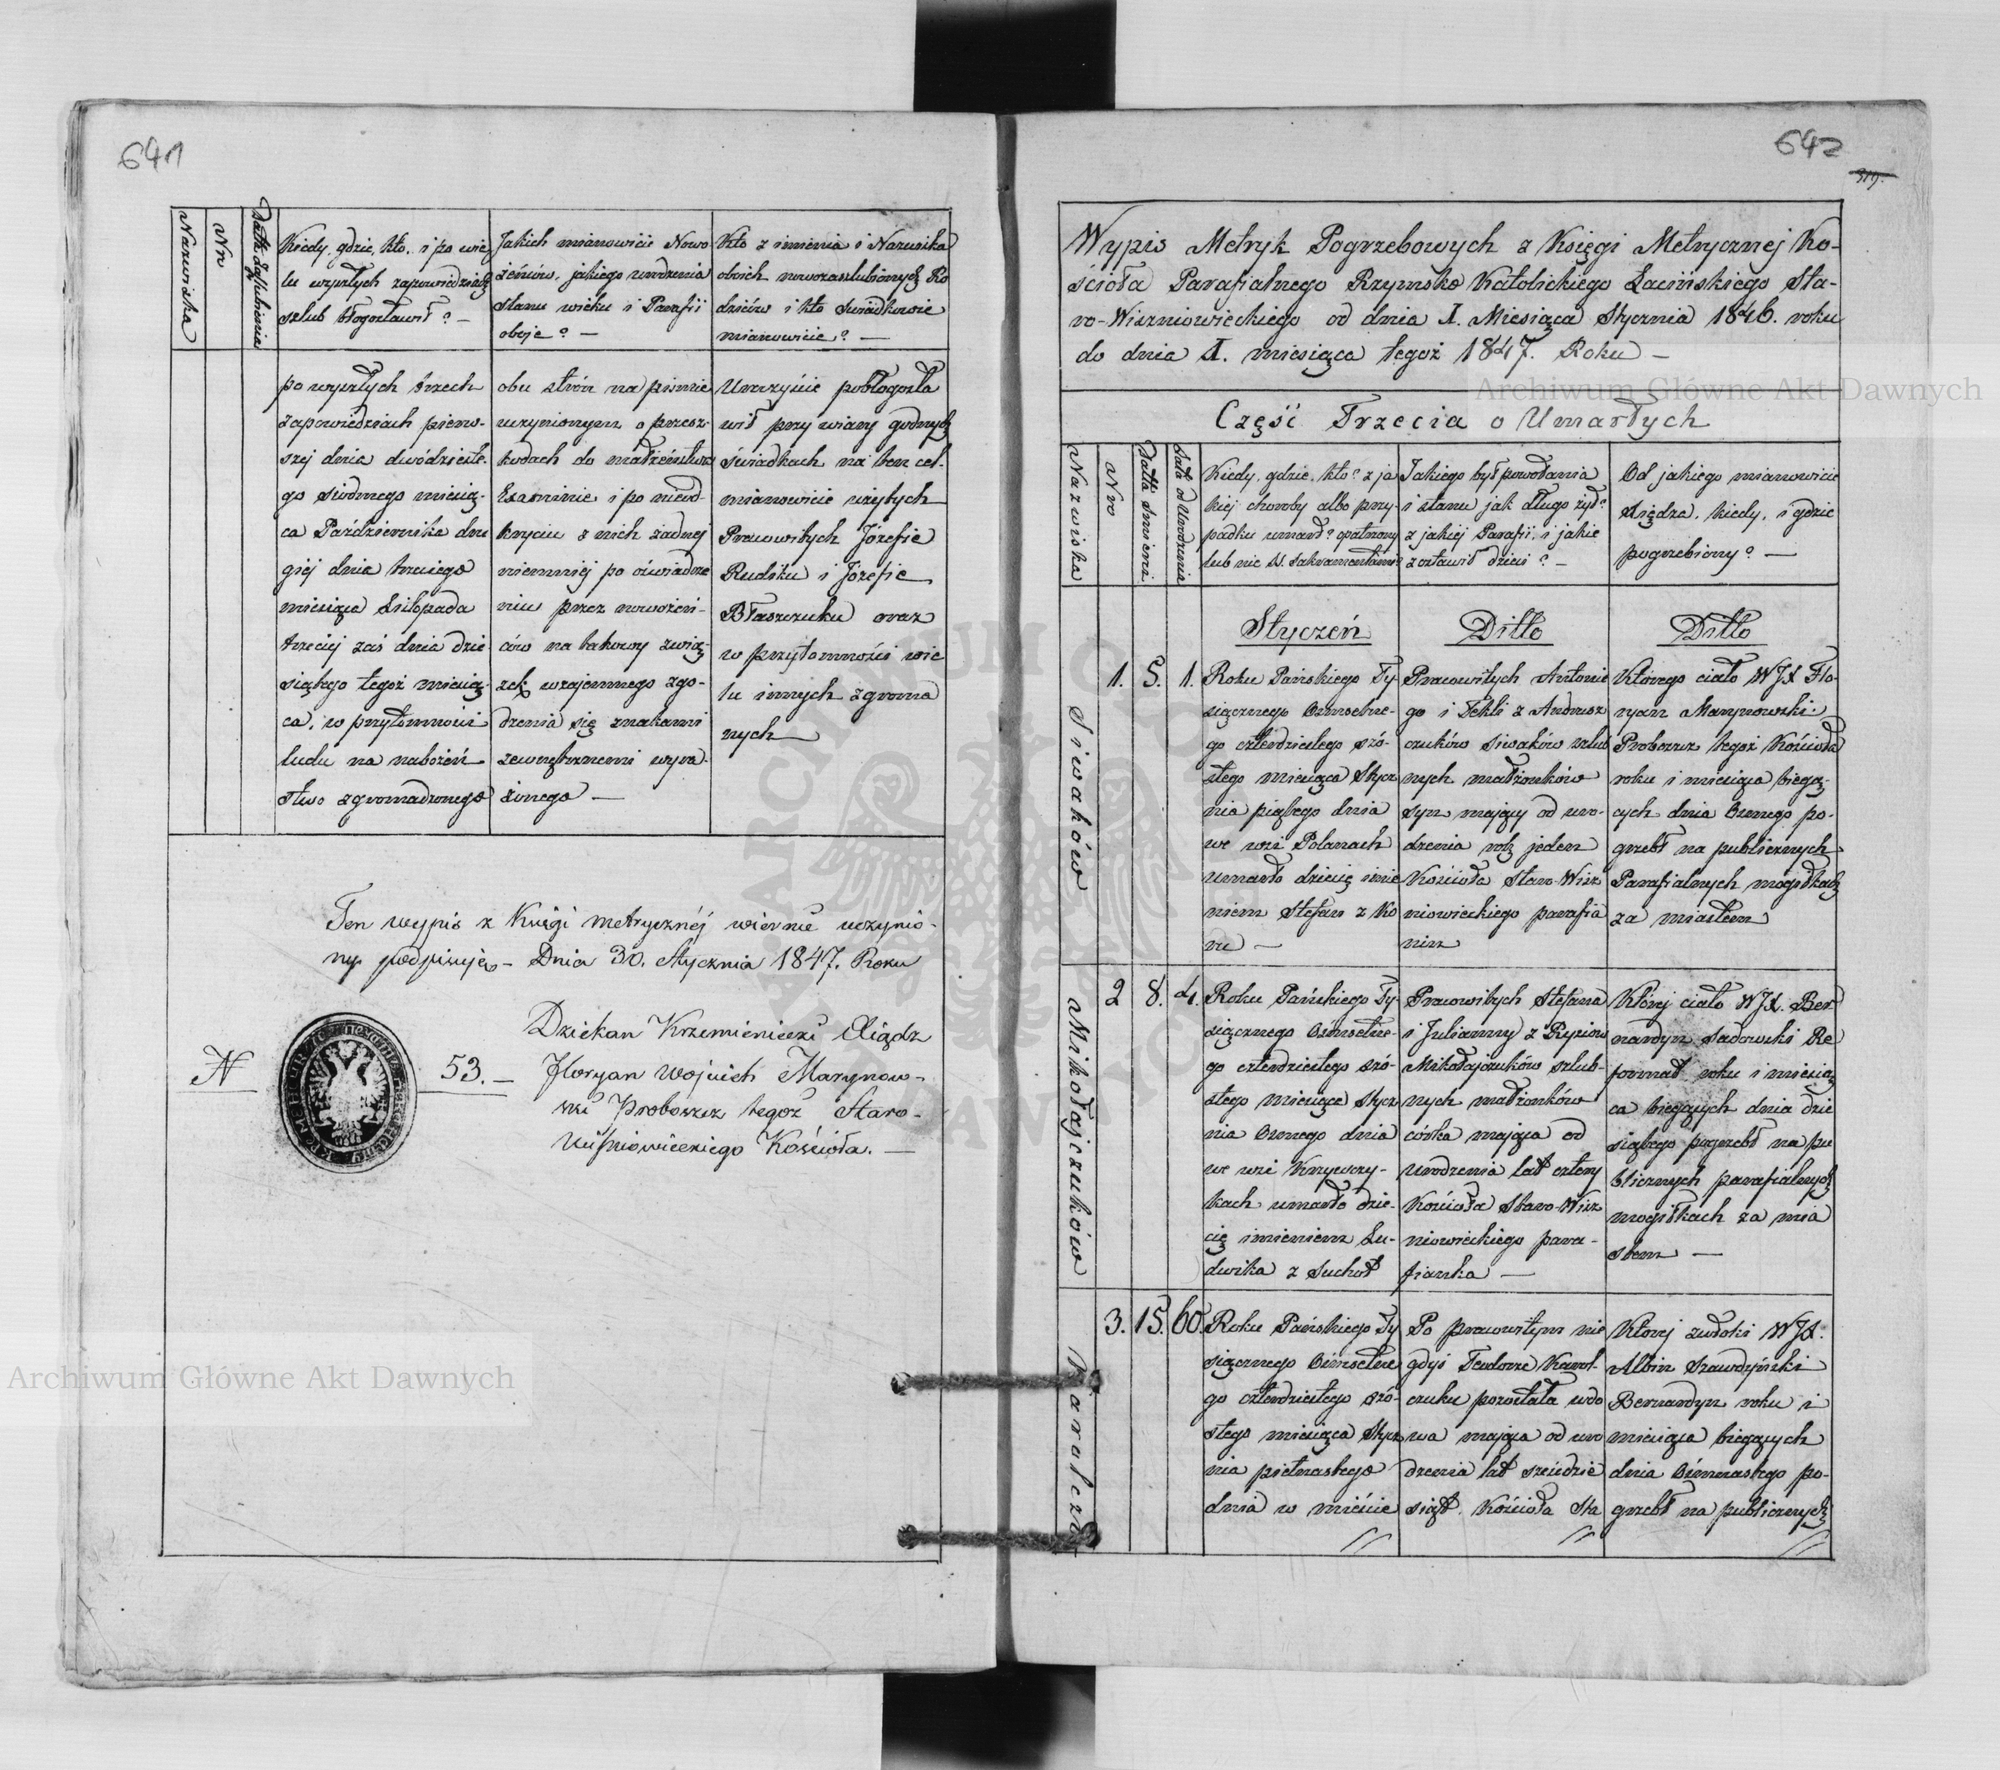 641
Nazwiska
Nr
Datta Zaślubienia
Kiedy, gdzie, kto, i po wie
lu wyszłych zapowiedziach
szlub błogosławił? —
Jakich mianowicie Nowo
żeńców, jakiego urodzenia
stanu wieku i Parafii
oboje? —
Kto z imienia i Nazwiska
oboich nowozaszlubionych Ro
dziców i kto Świadkowie
mianowicie? —
po wyszłych trzech
zapowiedziach pierw-
szej dnia dwódzieste-
go siodmego miesią-
ca Października dru
giej dnia trzeciego
miesiąca Listopada
trzeciej zaś dnia dzie
siątego tegoż miesią-
ca, w przytomności
ludu na nabożeń
stwo zgromadzonego
obu stron na piśmie
uczynionym o przesz-
kodach do małżeństwa
Examinie i po nieod-
kryciu z nich żadnej
niemniej po oświadcze
niu przez nowożeń-
ców na takowy zwią-
zek wzajemnego zgo-
dzenia się znakami
zewnętrznemi wyra-
żonego —
Uroczyście pobłogosła
wił przy wiary godnych
świadkach na ten cel
mianowicie użytych
Pracowitych Józefie
Rudiku i Józefie
Błaszczuku oraz
w przytomności wie
lu innych zgroma
nych
Ten wypis z Księgi metrycznéj wiernie uczynio-
ny podpisuję — Dnia 30. Stycznia 1847. Roku
N 53. —
Dziekan Krzemieniecki Xiądz
Floryan Wojciech Marynow-
ski Proboszcz tegoż Staro-
Wiśniowieckiego Kościoła. —
642
319.
Wypis Metryk Pogrzebowych z Księgi Metrycznej Ko-
ścioła Parafialnego Rzymsko Katolickiego Łacińskiego Sta-
ro-Wiszniowieckiego od dnia I. Miesiąca Stycznia 1846. roku
do dnia I. miesiąca tegoż 1847. Roku —
Część Trzecia o Umarłych
Nazwiska
Nro
Datta Smierci
Lata od Urodzenia
Kiedy, gdzie, kto? z ja
kiej choroby albo przy-
padku umarł? opatrzony
lub nie SS. Sakramentami
Jakiego był powołania
i stanu jak długo żył?
z jakiej Parafii, i jakie
zostawił dzieci? —
Od jakiego mianowicie
Księdza, kiedy, i gdzie
pogrzebiony? —
Styczeń
Ditto
Ditto
Siwaków
1. 5. 1.
Roku Pańskiego Ty-
siącznego Osmsetne-
go czterdziestego szó-
stego miesiąca Stycz
nia piątego dnia
we wsi Polanach
umarło dziecię imie
niem Stefan z Ko
ru —
Pracowitych Antonie
go i Tekli z Andrusz
czuków Siwaków szlub
nych małżonków
syn mający od uro-
dzenia rok jeden
Kościoła Staro-Wisz
niowieckiego parafia
nin
Którego ciało WJX Flo-
ryan Marynowski
Proboszcz tegoż Kościoła
roku i miesiąca bieżą-
cych dnia Osmego po-
grzebł na publicznych
Parafialnych mogiłkach
za miastem
Mikołajczuków
2 8. 4.
Roku Pańskiego Ty-
siącznego Osmsetne-
go czterdziestego szó-
stego miesiąca Stycz
nia Osmego dnia
we wsi Krzywczy-
kach umarło dzie-
cię imieniem Lu-
dwika z Suchot
Pracowitych Stefana
i Julianny z Rypiow
Mikołajczuków szlub-
nych małżonków
córka mająca od
urodzenia lat cztery
Kościoła Staro-Wisz
niowieckiego para-
fianka —
Której ciało WJX. Ber
nardyn Sadowski Re
format roku i miesią
ca bieżących dnia dzie
siątego pogrzebł na pu
blicznych parafialnych
mogiłkach za mia
stem —
3. 15. 60.
Roku Pańskiego Ty
siącznego Osmsetne
go czterdziestego szó-
stego miesiąca Stycz
nia pietnastego
dnia w mieście
Po pracowitym nie
gdyś Teodorze Karol-
czuku pozostała wdo
wa mająca od uro
dzenia lat sześdzie
siąt, Kościoła Sta
Której zwłoki WJX.
Albin Szawdyński
Bernardyn roku i
miesiąca bieżących
dnia Osmnastego po-
grzebł na publicznych
Archiwum Główne Akt Dawnych
Archiwum Główne Akt Dawnych